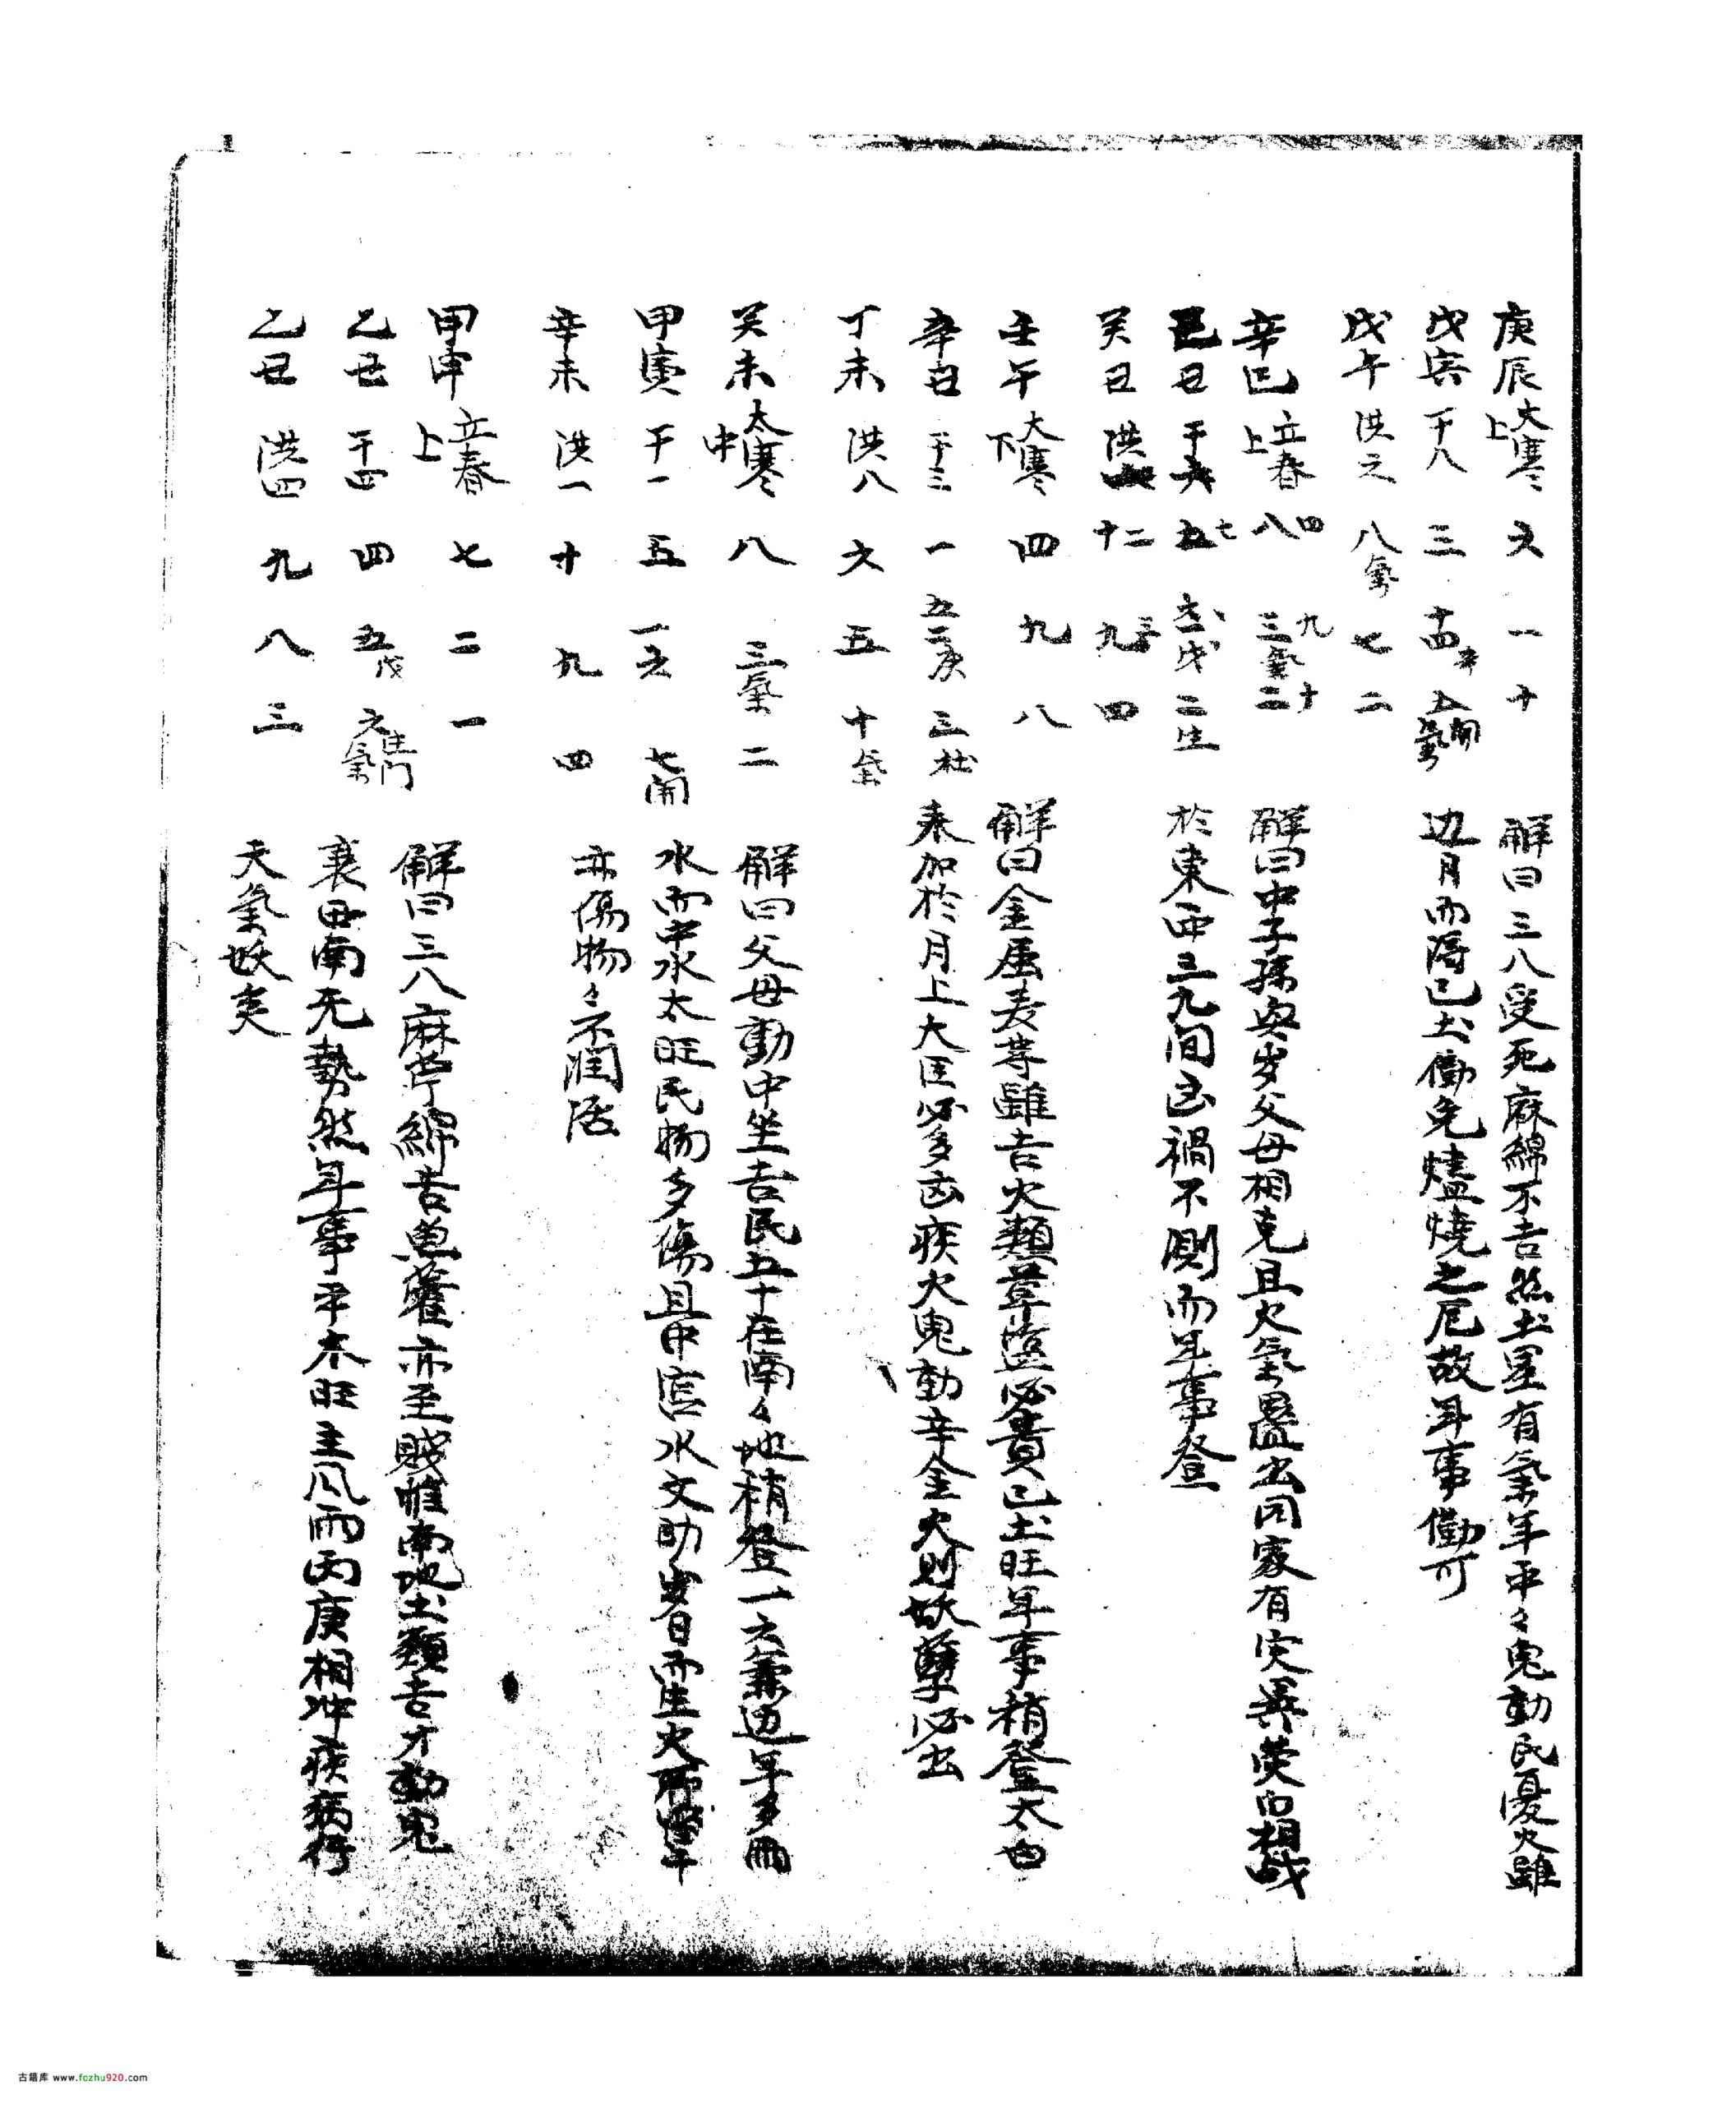 庚辰 大寒上 六 一 十 解曰三八受死麻綿不吉然土星有氣年平々鬼動民憂火雖
戊寅 干八 三 十四 五氣開 边月而得己土働免燼燒之厄故年事働可
戊午 洪六 八氣 七 二
辛巳 立春上 八四 三氣九 二十 解曰中子孫與岁父母相克且火氣盪出同家有灾異荧白相战
己丑 干六 五七 六戊 二生 於東西三九间凶禍不測而年事登
癸丑 洪 十二 九 四
壬午 大寒下 四 九 八 解曰金屬麦等雖吉火類草盪必貴己土旺年事稍登太白
辛丑 干三 一 五二庚 三杜 来加於月上大臣必多凶疾火鬼動辛金火則妖孽必出
丁未 洪八 六 五 十氣
癸未 太寒中 八 三氣 二 解曰父母動中坐吉民五十在南々地稍登一六兼边年多雨
甲寅 干一 五 一六 七開 水而中水太旺民物多傷且中宮水文助岁日而生火
辛未 洪一 十 九 四 亦傷物々不润泽
甲申 立春上 七 二 一 解曰三八麻苧綿吉魚藿亦至贱惟南地土類吉才動鬼
乙丑 干四 四 五戊 六氣生门 衰田南无勢然年事平木旺主风雨丙庚相冲疾病行
乙丑 洪四 九 八 三 天氣妖
古籍库 www.fczhu920.com